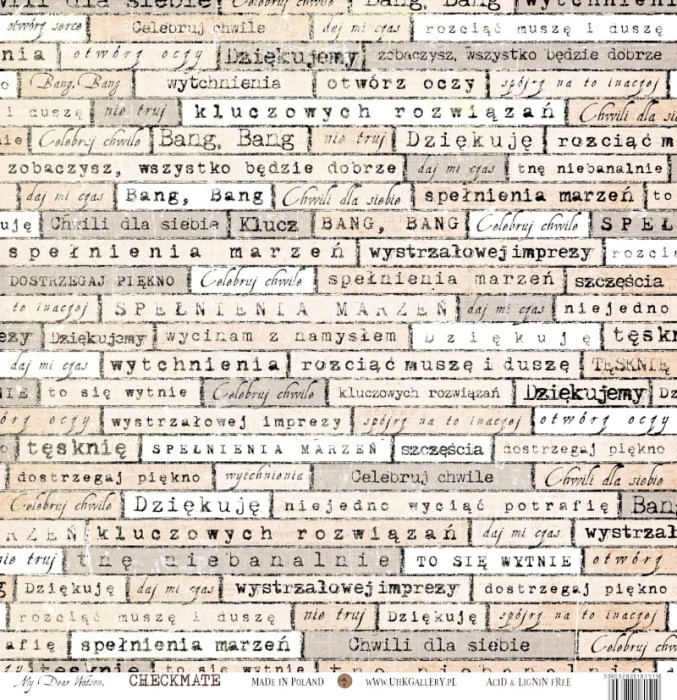 wili dla siebie Celebruj chwile Bang, Bang wytchnieni
otwórz serce Celebruj chwile daj mi czas rozciąć muszę i duszę
nia otwórz oczy Dziękujemy zobaczysz, wszystko będzie dobrze
Bang, Bang wytchnienia otwórz oczy spójrz na to inaczej
i duszę nie truj kluczowych rozwiązań Chwili dla si
ie Celebruj chwile Bang, Bang nie truj Dziękuję rozciąć m
zobaczysz, wszystko będzie dobrze daj mi czas tnę niebanalnie
daj mi czas Bang, Bang Chwili dla siebie spełnienia marzeń to
uję Chwili dla siebie Klucz BANG, BANG Celebruj chwile SPEŁ
spełnienia marzeń wystrzałowej imprezy rozcią
DOSTRZEGAJ PIĘKNO Celebruj chwile spełnienia marzeń szczęścia
to inaczej SPEŁNIENIA MARZEŃ daj mi czas niejedno
ezy Dziękujemy wycinam z namysłem Dziękuję tęskn
daj mi czas wytchnienia rozciąć muszę i duszę TĘSKNIĘ
NIE to się wytnie Celebruj chwile kluczowych rozwiązań Dziękujemy Dz
órz oczy wystrzałowej imprezy spójrz na to inaczej otwórz oczy
o tęsknię SPEŁNIENIA MARZEŃ szczęścia dostrzegaj piękno
dostrzegaj piękno wytchnienia Celebruj chwile Chwili dla siebie
Celebruj chwile Dziękuję niejedno wyciąć potrafię Bang
RZEŃ kluczowych rozwiązań daj mi czas wystrzał
nie truj tnę niebanalnie TO SIĘ WYTNIE otwórz
g Dziękuję daj mi czas wystrzałowej imprezy dostrzegaj piękno
rozciąć muszę i duszę nie truj Dziękuję spójrz na to inaczej
afię spełnienia marzeń Chwili dla siebie Celebruj chwi
tęsknię to się wytnie tnę niebanalnie
My Dear Watson, CHECKMATE MADE IN POLAND WWW.UHKGALLERY.PL ACID & LIGNIN FREE